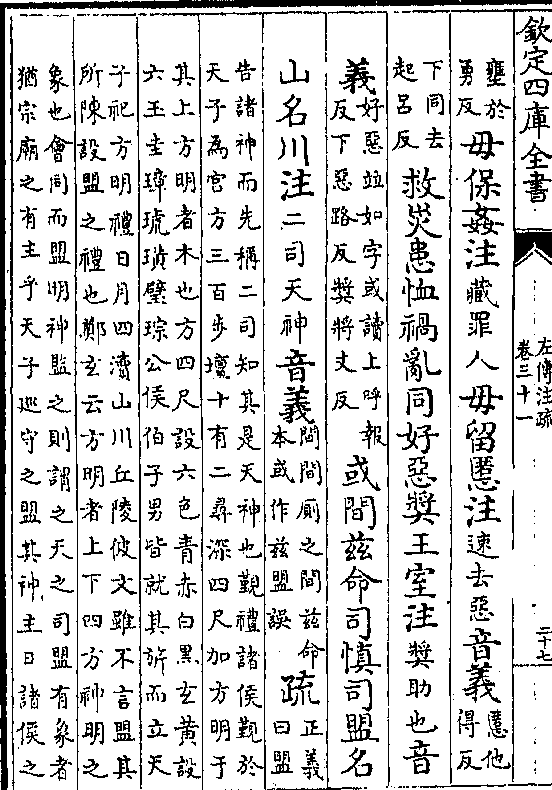 欽定四庫全書
左傳注疏
卷三十一
二十七
壅於勇反毋保姦注藏罪人毋留慝注速去惡音義慝他得反
下同去起呂反救災患恤禍亂同好惡獎王室注獎助也音
義好惡並如字或讀上呼報反下惡路反獎將丈反或間茲命司慎司盟名
山名川注二司天神音義間間厠之間茲命本或作茲盟誤疏正義曰盟
告諸神而先稱二司知其是天神也覲禮諸侯覲於
天子為宮方三百步壇十有二尋深四尺加方明于
其上方明者木也方四尺設六色青赤白黑玄黃設
六玉圭璋琥璜璧琮公侯伯子男皆就其旂而立天
子祀方明禮日月四瀆山川丘陵彼文雖不言盟其
所陳設盟之禮也鄭玄云方明者上下四方神明之
象也會同而盟明神監之則謂之天之司盟有象者
猶宗廟之有主乎天子巡守之盟其神主日諸侯之